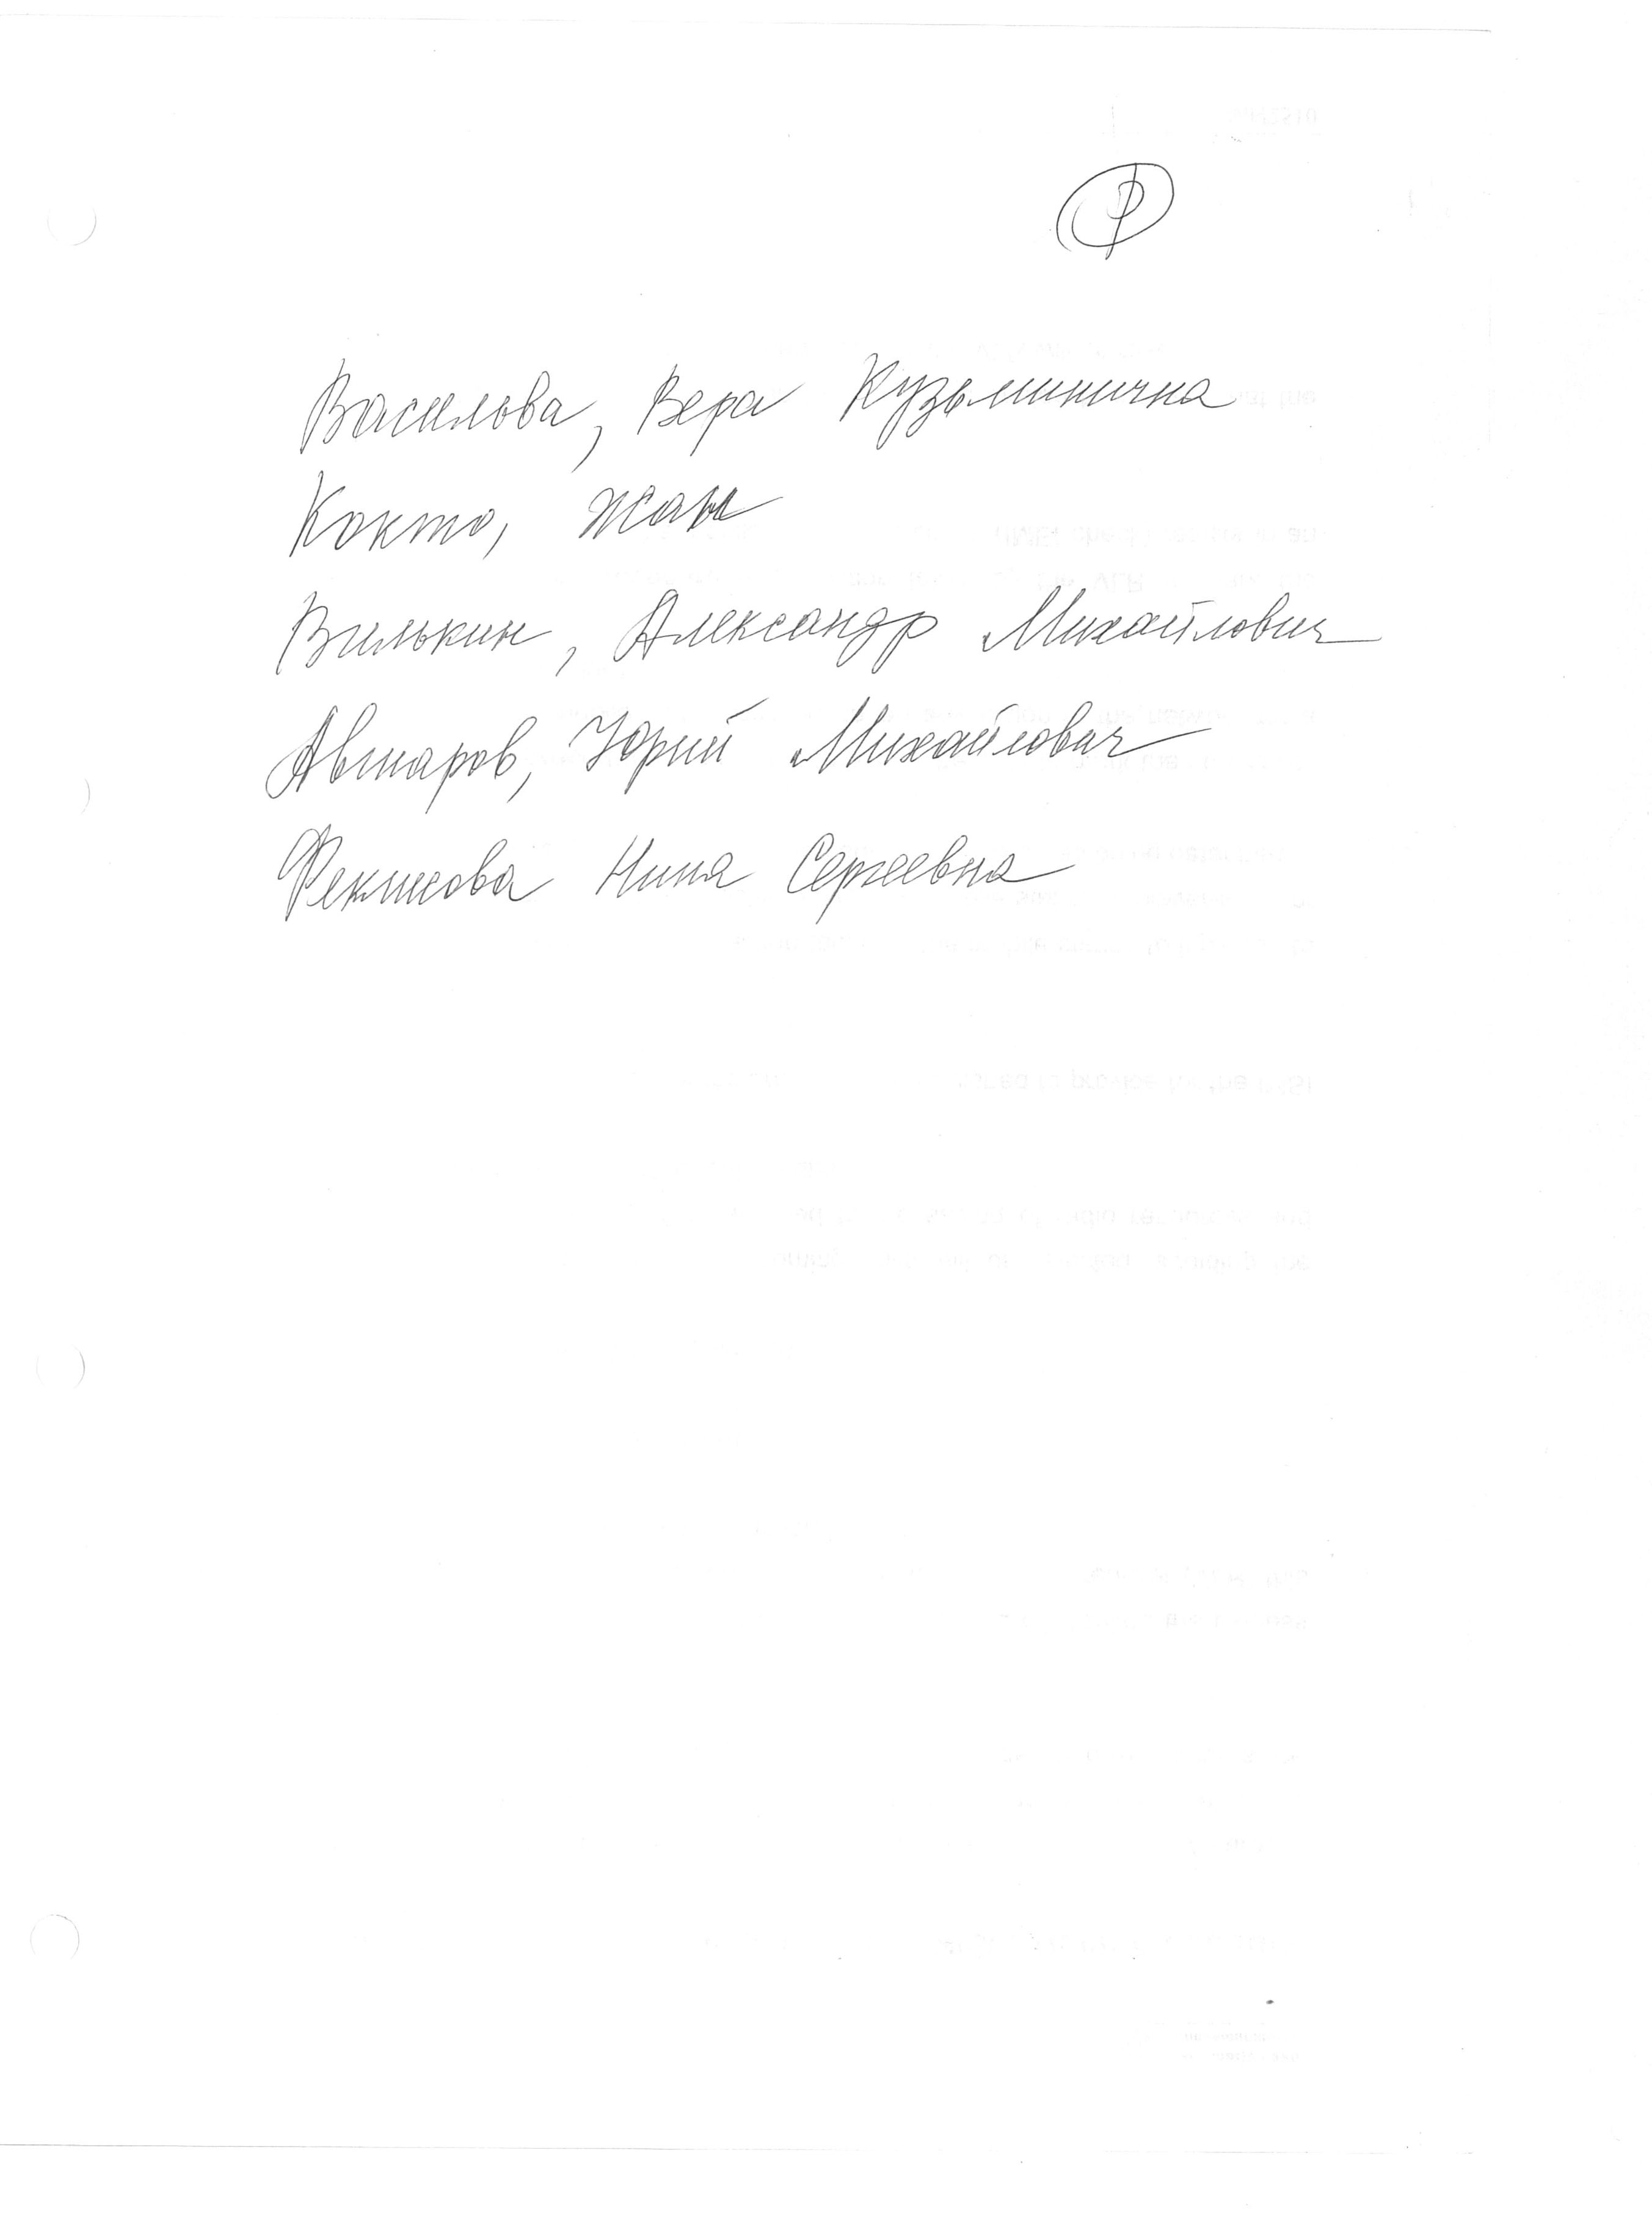 Ф
Васильева, Вера Кузьминична
Кокто, Жан
Вилькин, Александр Михайлович
Авшаров, Юрий Михайлович
Феклисова Нина Сергеевна